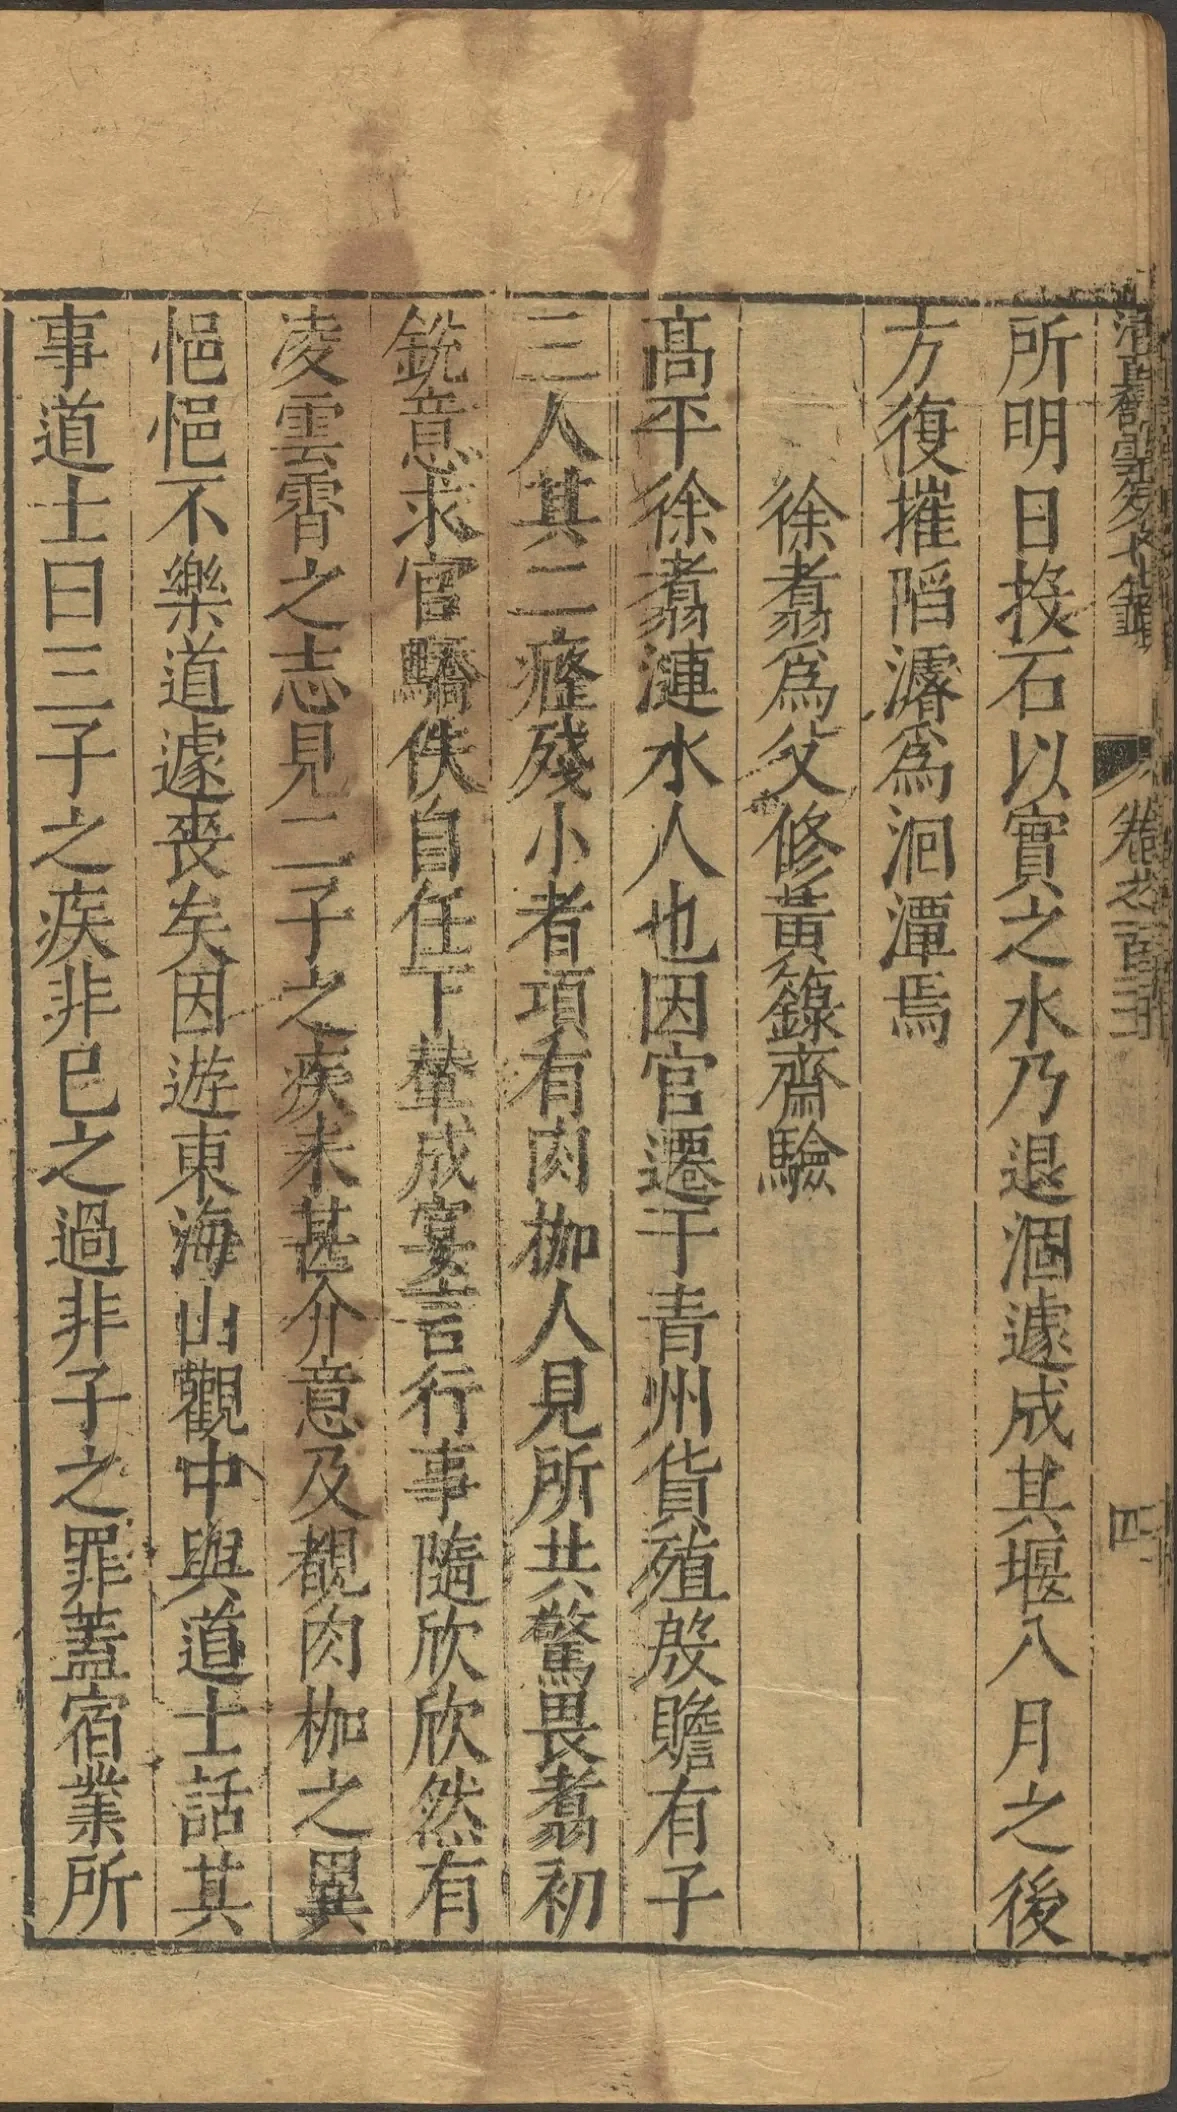 卷之百二 四
所明日投石以實之水乃退涸遽成其堰八月之後
方復摧陷濬爲洄潭焉
徐翥爲父修黃籙齋驗
髙平徐翥漣水人也因官遷于青州貨殖殷贍有子
三人其二癃殘小者項有肉枷人見所共驚畏翥初
銳意求官驕佚自任下輦成宴言行事隨欣欣然有
凌雲霄之志見二子之疾未甚介意及覩肉枷之異
悒悒不樂道遽喪矣因遊東海山觀中與道士話其
事道士曰三子之疾非已之過非子之罪蓋宿業所